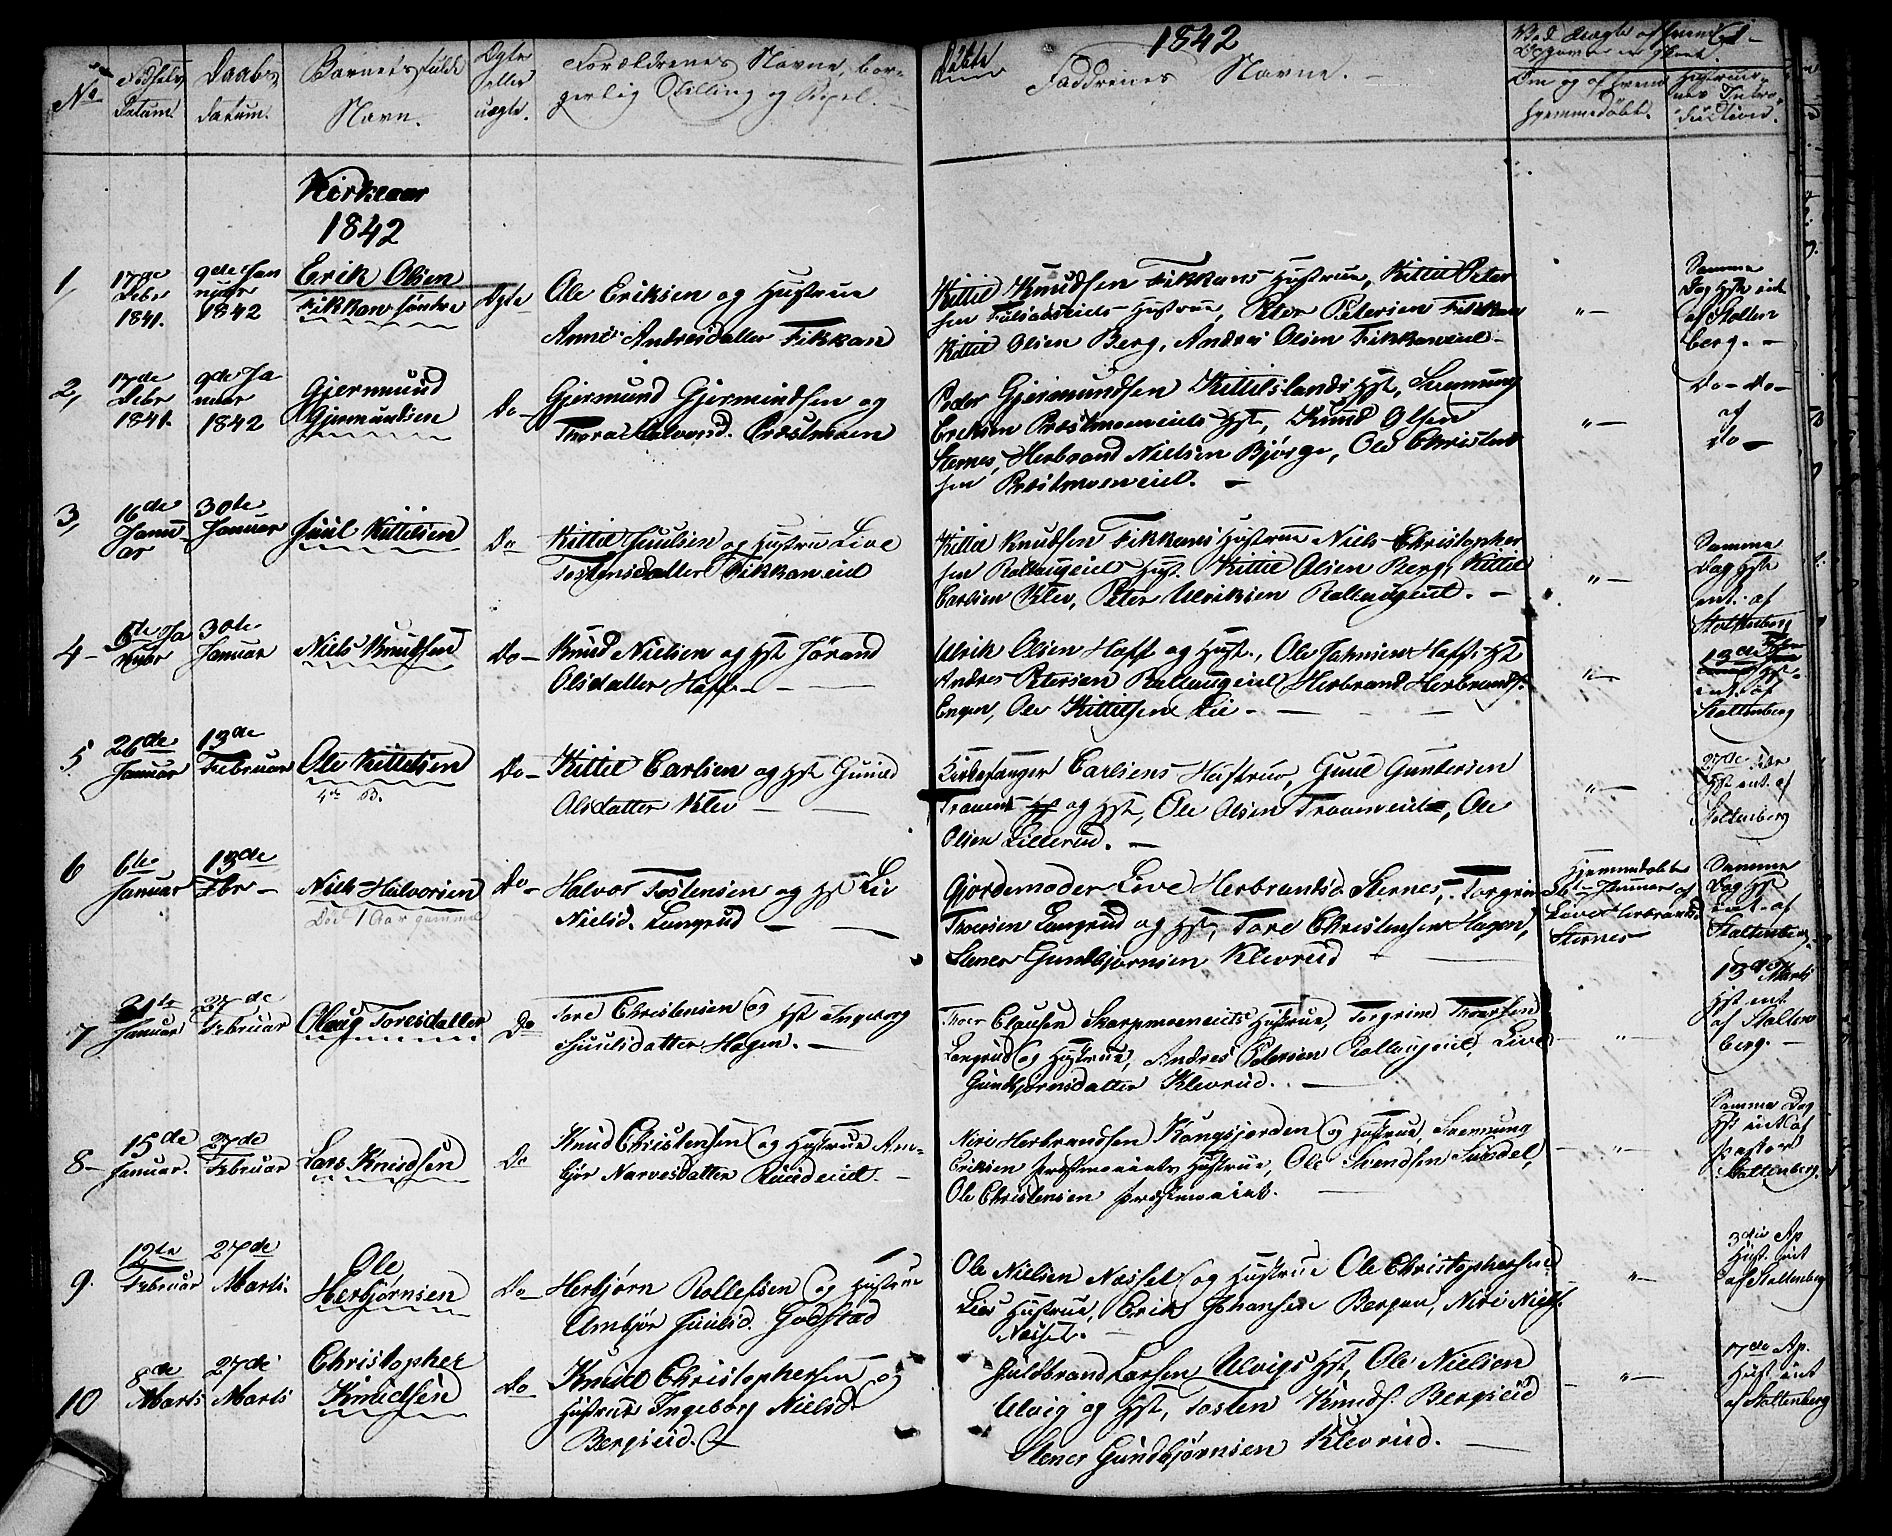 1842
No
Fødsels Datum.
Daabs datum.
Barnets fulde Navn.
Ægte eller uægte.
Forældrenes Navne, borgerlig Stilling og Bopel.
Faddrenes Navne.
Om og af hvem hjemmedøbt.
Kirkeaar
1842
1,
17de Debr 1841.
9de Januar 1842
Erik Olsen
Fikkan søntre
Ægte
Ole Eriksen og Hustrue
Anne Andresdatter Fikkan
Kittil Knudsen Fikkans Hustrue, Kittil Peter
sen Hustrue, Peter Petersen Fikkan
Kittil Olsen Berg, Andres Olsen Fikkaneiet
Samme
Dag
af Stolten
berg.
2,
17de Debr 1841.
9de Januar 1842
Gjermund
Gjermundsen
Do
Gjermund Gjermundsen og
Thora Halvorsd. Præstmoen
Peder Gjermundsen Kittilslands Hst,
Eriksen Præstmoeneiets Hst, Knud Olsen
Sternes, Herbrand Nielsen Bjørge, Ole Christen
sen Præstmoeneiet.
Do Do
af
Do
3,
16de Januar
30te Januar
Juul Kittilsen
Do
Kittil Juulsen og Hustru Live
Tostensdatter Fikkaneiet
Kittil Knudsen Fikkans Hustrue Niels Christopher
sen Rallaugeiet Hust. Kittil Olsen Berg, Kittil
Carlsen Klev, Peter Ulriksen Rallaugeiet.
Samme
Dag Hst
ent. af
Stoltenberg
4
30te Januar
Niels Knudsen
Do
Knud Nielsen og Hst Jørand
Olsdatter Hoff
Ulrik Olsen Hoff og Hust., Ole Johnsens Hoff. Hst
Andres Petersen Rallaugeiet, Herbrand Herbrands.
Engen, Ole Kittilsen Lie
ent. af
Stoltenberg
5
26de Januar
13de Februar
Ole Kittilsen
Do
Kittil Carlsen og Hst Gunild
Olsdatter Klev
Kirkesanger Carlsens Hustrue, Guul Gundersen
og Hst, Ole Olsen Traaneiet, Ole
Olsen Lillerud.
27de Febr
Hst ent. af
Stoltenberg
6
6te Januar
13de Fbr
Niels Halvorsen
Død 1 Aar gammel
Do
Halvor Tostensen og Hst Liv
Nielsd. Langrud
Gjordemoder Live Herbrandsd Sternes, Torgrim
Thorsen Langrud og Hst, Tore Christensen Hagen,
Stener Gundbjørnsen Klevrud
Hjemmedøbt
6te Januar af
Live Herbrandsd
Sternes
Samme
Dag Hst
ent. af
Stoltenberg
7
31te Januar
27de Februar
Olaug Toresdatter
Do
Tore Christensen og Hst Ingeborg
Juulsdatter Hagen.
Thor Clausen Skarpmoeneiets Hustrue, Torgrim Thorsen
Langrud og Hustrue, Andres Petersen Rallaugeiet, Live
Gundbjørnsdatter Klevrud.
13de Marts
Hst ent
af Stolten
berg.
8
15de Januar.
27de Februar
Lars Knudsen
Do
Knud Christensen og Hustrue Am-
bjør Narvesdatter Ruudeiet.
Niri Herbrandsen Kongsjorden og Hustrue,
Eriksen Præstmoeneiets Hustrue, Ole Svendsen Sundet,
Ole Christensen Præstmoeiet.
Samme Dag
Hst ent af
Pastor
Stoltenberg
9.
12te Februar
27de Marts.
Ole
Herbjørnsen
Do
Herbjørn Rollefsen og Hustrue
Ambjør Juulsd. Godstad
Ole Nielsen Næsset og Hustrue Ole Christophersen
Lies Hustrue, Erik Johansen Bergan, Niri Niels.
Næsset.
3die Ap
Hust. ent
af Stoltenberg
10
8de Marts
27de Marts
Christopher
Knudsen
Do
Knud Christophersen og
Hustrue Ingeborg Nielsd
Bergseid.
Guldbrand Larsen Ulvigs Hst, Ole Nielsen
Ulvig og Hst, Tosten Knuds. Bergseid
Stener Gundbjørnsen Klevrud.
17de Ap.
Hust ent
af Stoltenberg